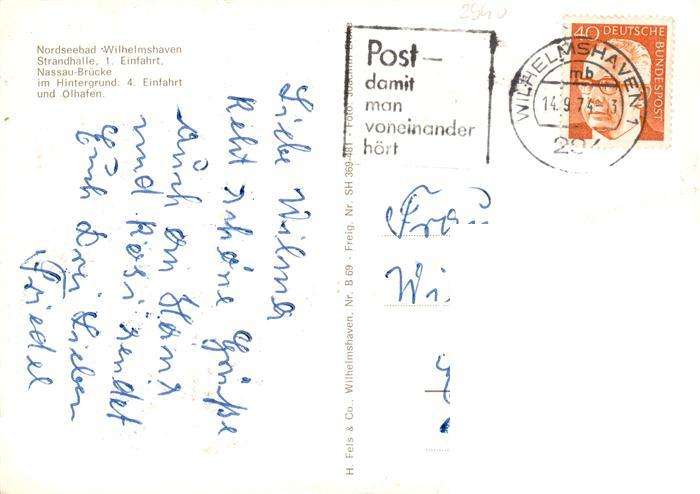 Nordseebad Wilhelmshaven
Strandhalle, 1. Einfahrt,
Nassau-Brücke
im Hintergrund: 4. Einfahrt
und Ölhafen.
Liebe Wilma
Recht schöne Grüße
Auch an Hans
und Rosi sendet
Euch Drei Lieben
Friedel
H. Fels & Co., Wilhelmshaven. Nr. B 69 - Freig. Nr. SH 369-481 - Foto: Joachim
2940
Post—
damit
man
voneinander
hört
WILHELMSHAVEN 1
mb
14.9.74
294
40 DEUTSCHE
BUNDESPOST
Frau
Wi